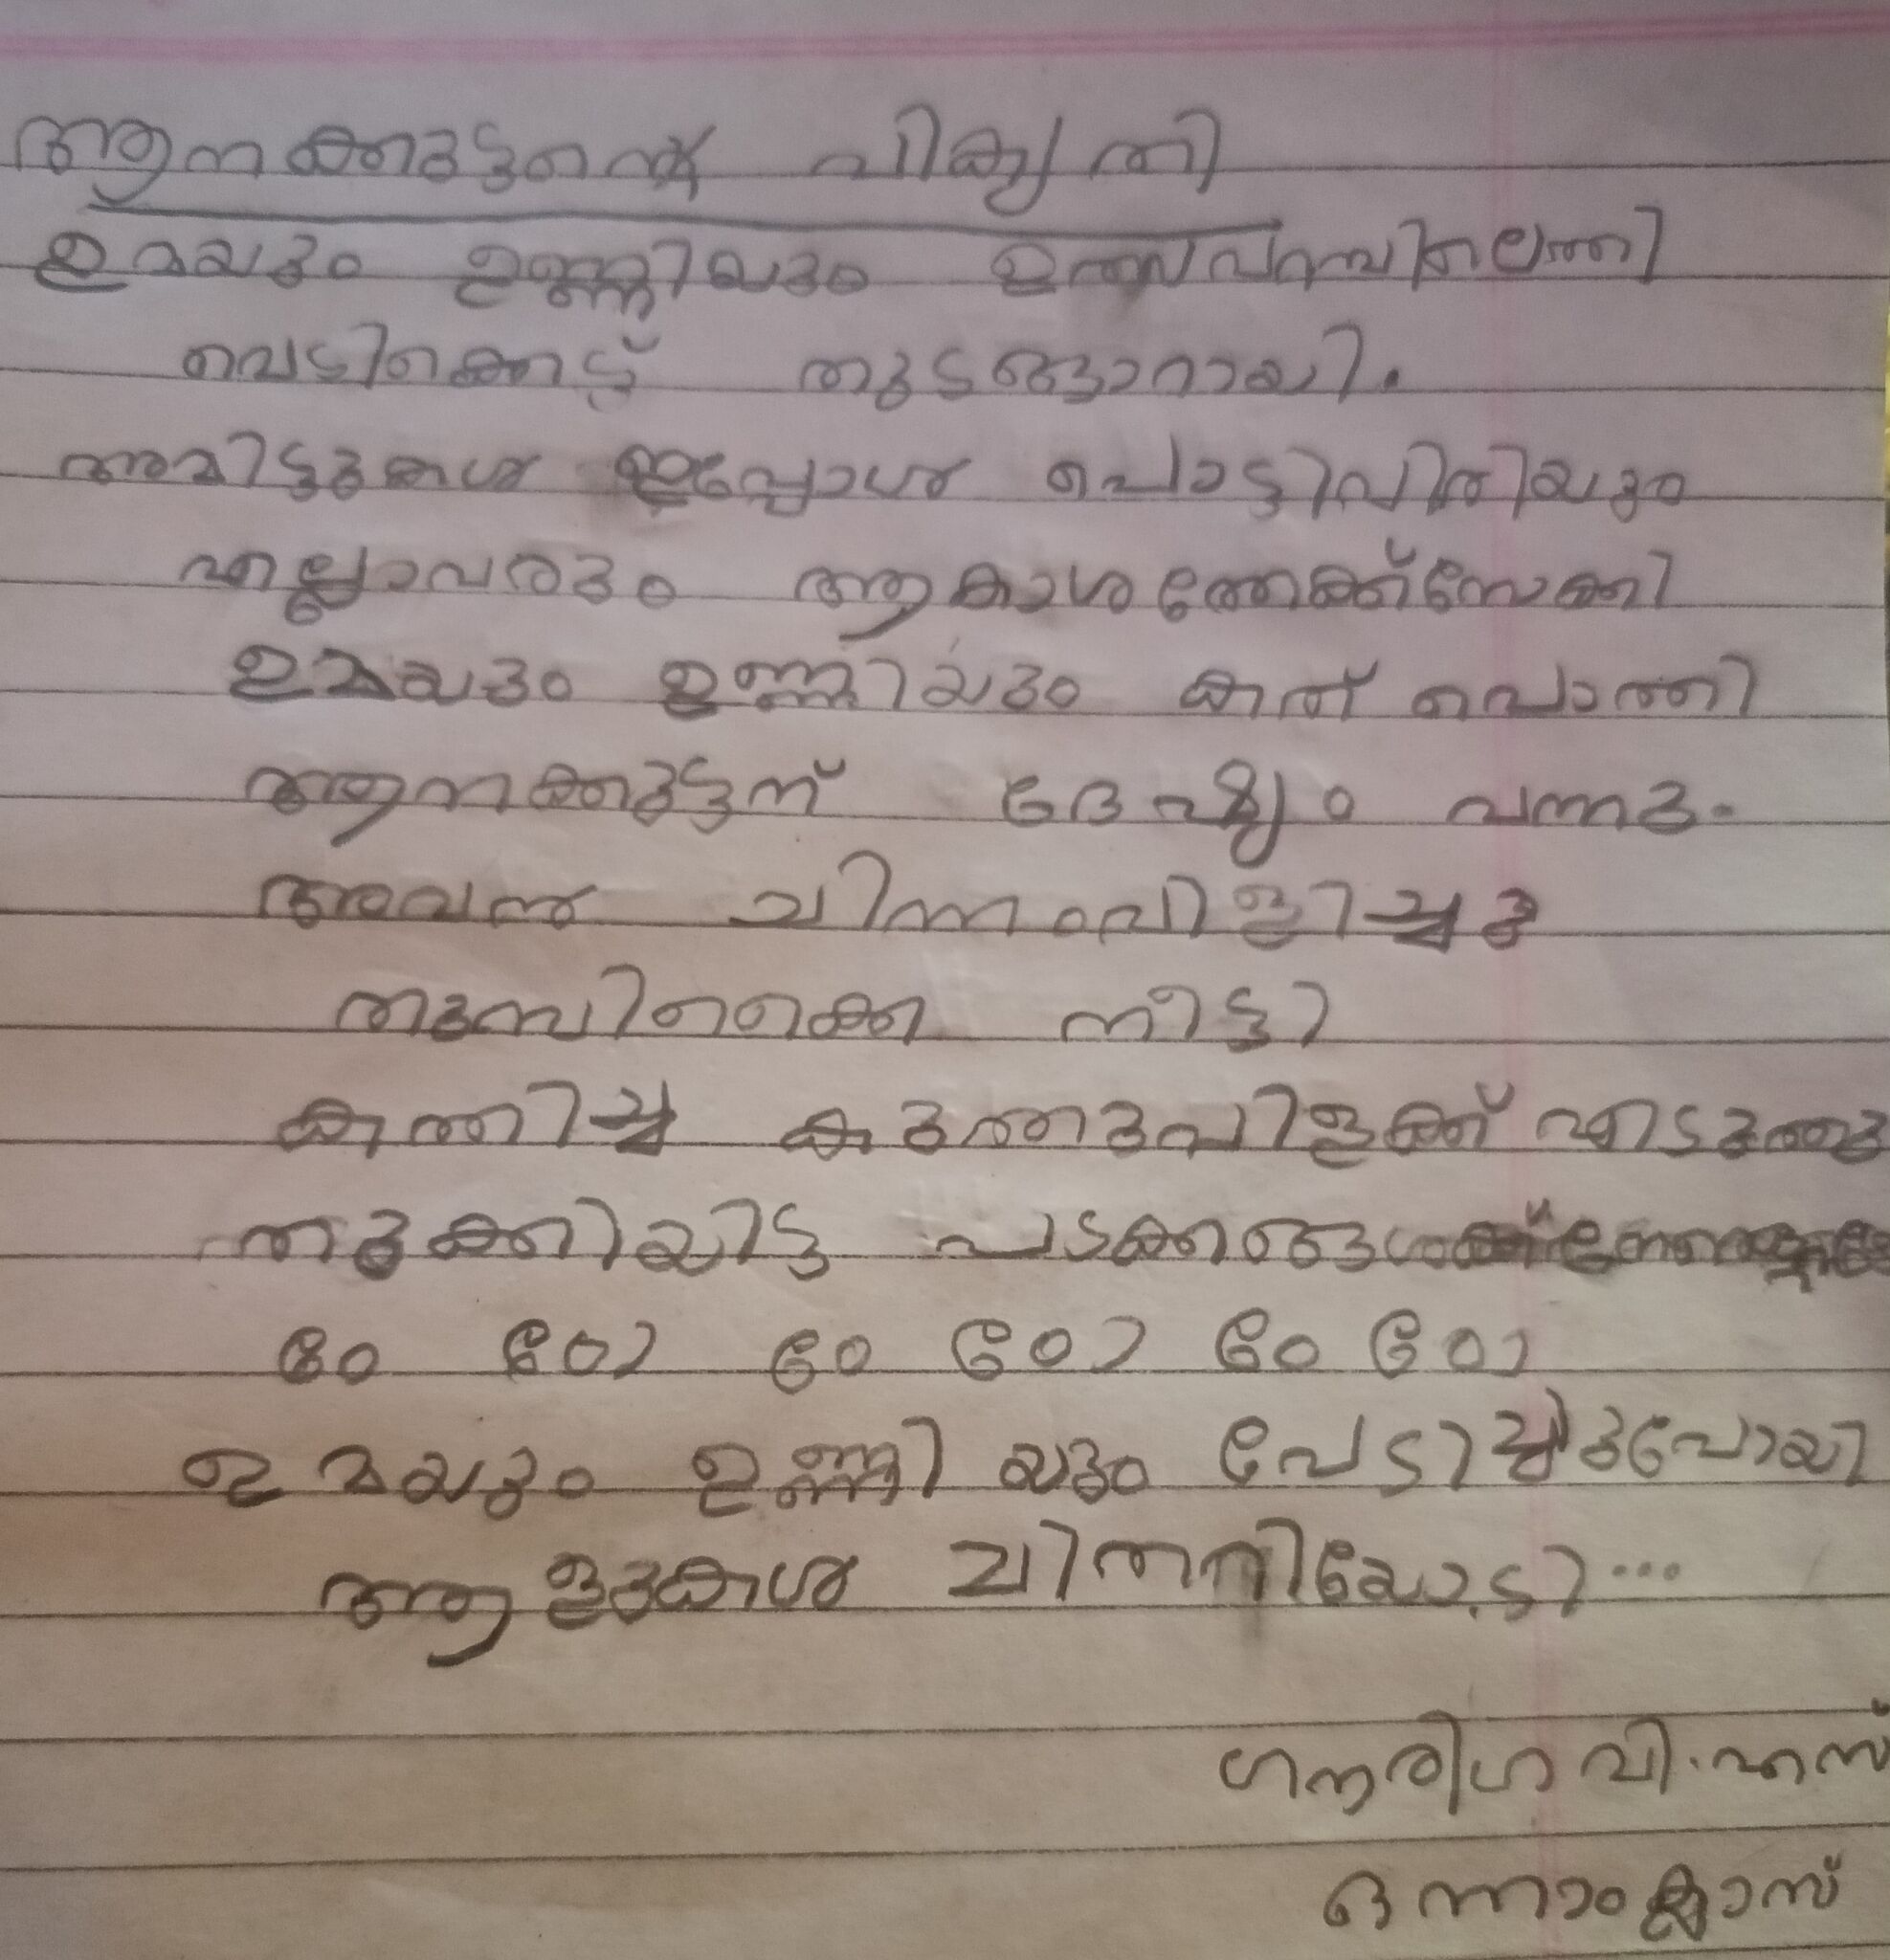 ആനക്കുട്ടന്റെ വികൃതി
ഉമയും ഉണ്ണിയും ഉത്സവപറമ്പിലെത്തി
വെടിക്കെട്ട് തുടങ്ങാറായി.
അമിട്ടുകൾ ഇപ്പോൾ പൊട്ടിവിരിയും
എല്ലാവരും ആകാശത്തേക്ക്നോക്കി
ഉമയും ഉണ്ണിയും കത് പൊത്തി
ആനക്കുട്ടന് ദേഷ്യം വന്നു.
അവൻ ചിന്നംവിളിച്ചു
തുമ്പിക്കൈ നീട്ടി
കത്തിച്ച കുത്തുവിളക്ക് എടുത്തു
തൂക്കിയിട്ട പടക്കങ്ങൾക്ക്
ഠേ ഠോ ഠേ ഠോ ഠേ ഠോ
ഉമയും ഉണ്ണിയും പേടിച്ചുപോയി
ആളുകൾ ചിതറിയോടി...
ഗൗരിഗ വി.എസ്
ഒന്നാംക്ലാസ്